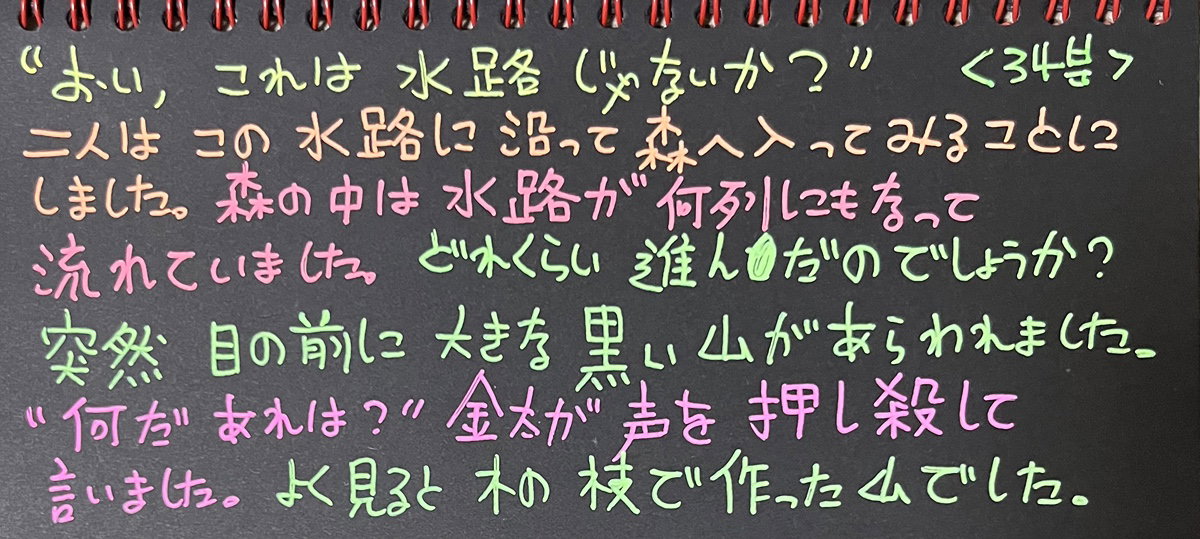 “おい, これは 水路 じゃないか？” <34分>
二人は この 水路に 沿って 森へ入ってみることに
しました。森の中は 水路が 何列にもなって
流れていました。どれくらい 進んだのでしょうか？
突然 目の前に 大きな 黒い 山があらわれました。
“何だ あれは？” 金太が 声を 押し殺して
言いました。よく見ると 木の 枝で作った 山でした。